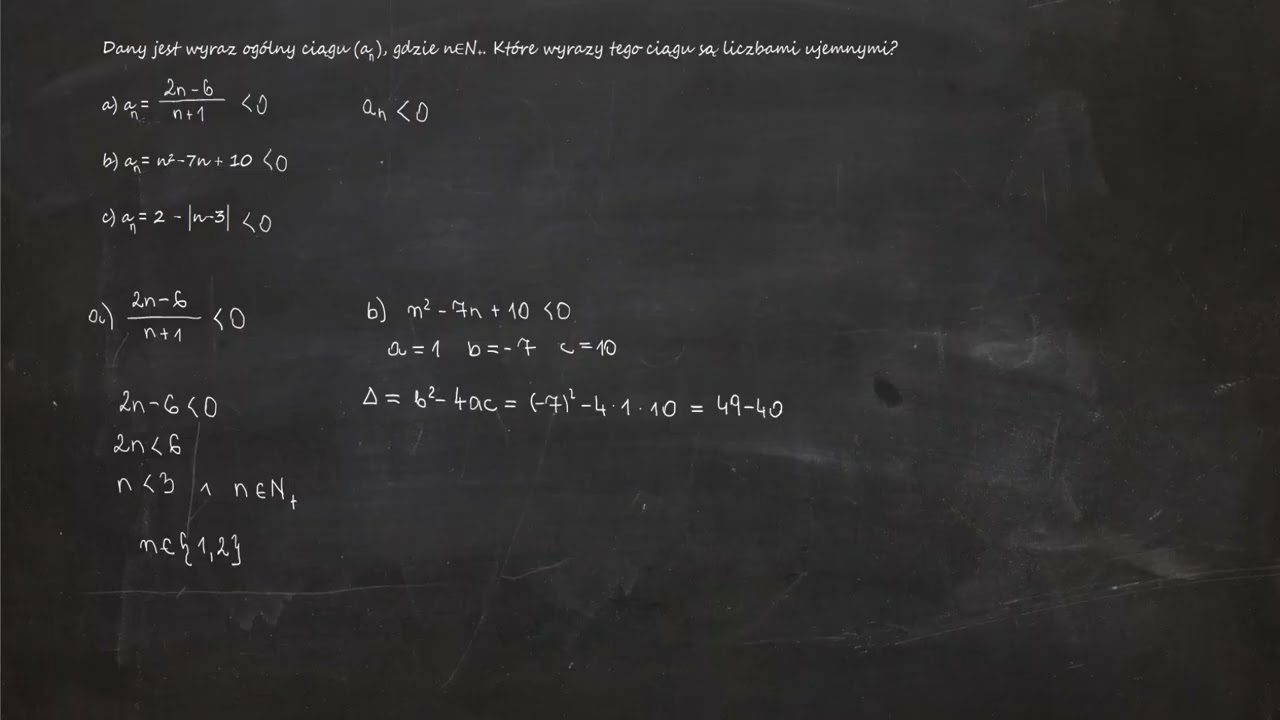 Dany jest wyraz ogólny ciągu (aₙ), gdzie n∈N₊. Które wyrazy tego ciągu są liczbami ujemnymi?
a) aₙ = (2n-6)/(n+1) <0    aₙ <0
b) aₙ = n²-7n+10 <0
c) aₙ = 2 - |n-3| <0
a) (2n-6)/(n+1) <0
2n-6<0
2n<6
n<3 ∧ n∈N₊
n∈{1,2}
b) n²-7n+10 <0
a=1 b=-7 c=10
Δ = b²-4ac = (-7)²-4·1·10 = 49-40